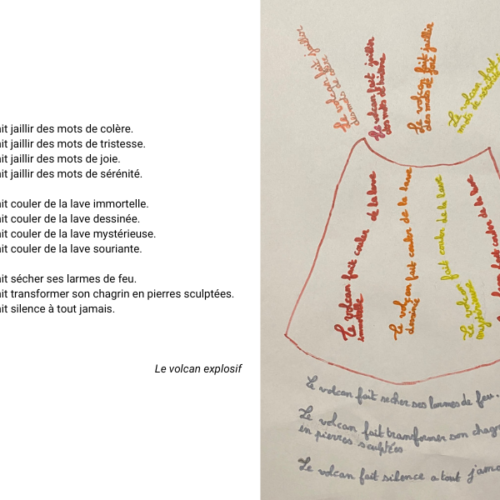 it jaillir des mots de colère.
it jaillir des mots de tristesse.
it jaillir des mots de joie.
it jaillir des mots de sérénité.
it couler de la lave immortelle.
it couler de la lave dessinée.
it couler de la lave mystérieuse.
it couler de la lave souriante.
it sécher ses larmes de feu.
it transformer son chagrin en pierres sculptées.
it silence à tout jamais.
Le volcan explosif
Le volcan fait jaillir
des mots de
Le volcan fait jaillir
des mots de
Le volcan fait jaillir
des mots de
Le volcan fait
mots de
Le volcan fait couler de la lave
immortelle
Le volcan fait couler de la lave
dessiné
Le volcan fait couler de la lave
mystérieuse
fait couler de la lave
Le volcan fait secher ses larmes de feu.
Le volcan fait transformer son chag
en pierres sculptées
Le volcan fait silence a tout jama